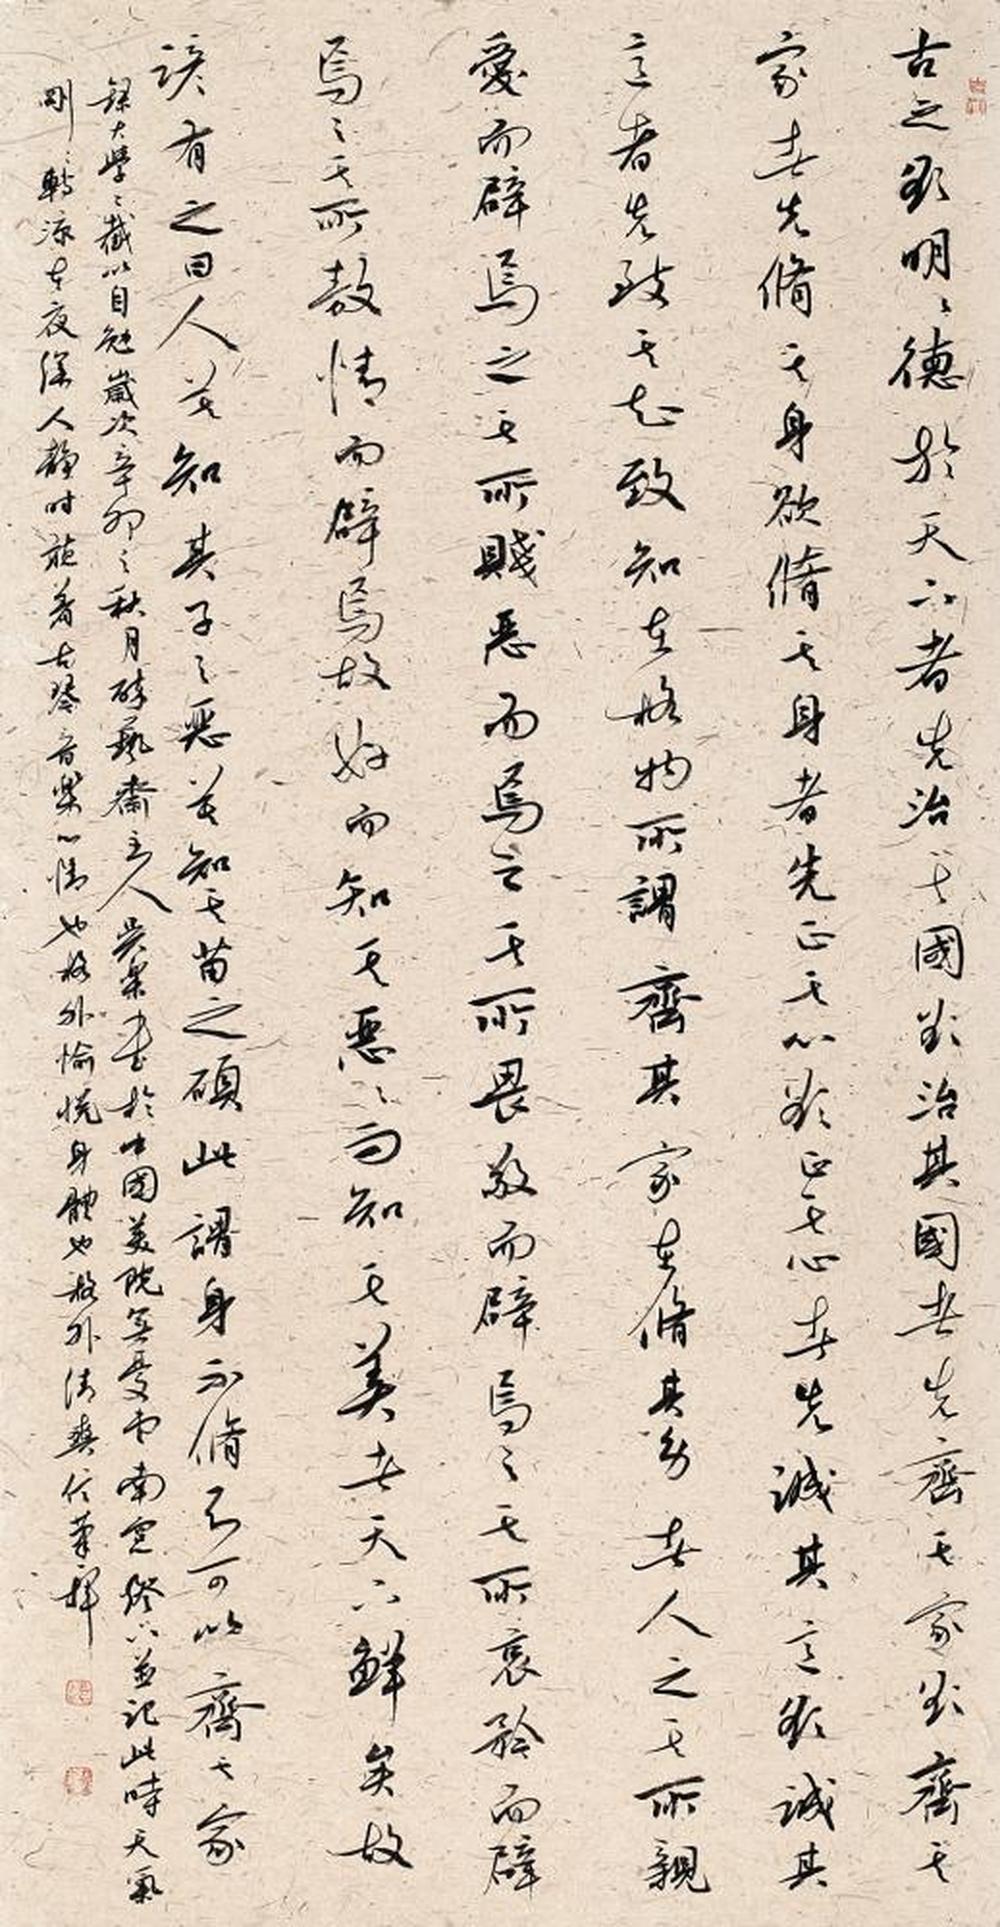 古之欲明明德於天下者先治其國欲治其國者先齊其家欲齊其
家者先脩其身欲脩其身者先正其心欲正其心者先誠其意欲誠其
意者先致其知致知在格物所謂齊其家在脩其身者人之其所親
愛而辟焉之其所賤惡而焉之其所畏敬而辟焉之其所哀矜而辟
焉之其所敖惰而辟焉故好而知其惡惡而知其美者天下鮮矣故
諺有之曰人莫知其子之惡莫知其苗之碩此謂身不脩不可以齊其家
錄大學之截以自勉歲次辛卯之秋月 藝齋主人 書於中國美院 南窗 並記此時天氣
剛剛轉涼在夜深人靜時 著古琴音樂心情也格外愉悅身體也格外清爽